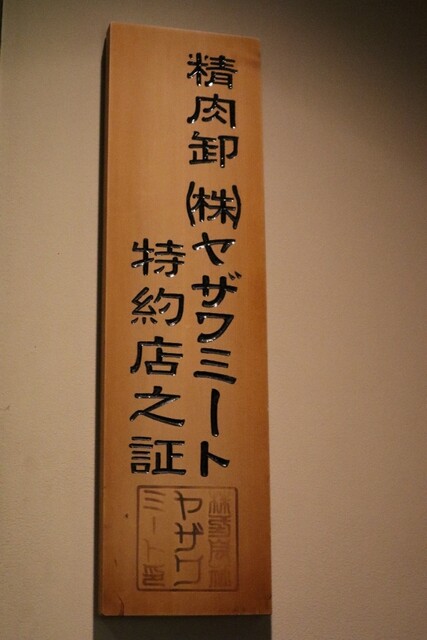 精肉卸㈱ヤザワミート
特約店之証
ヤザワ
ミート